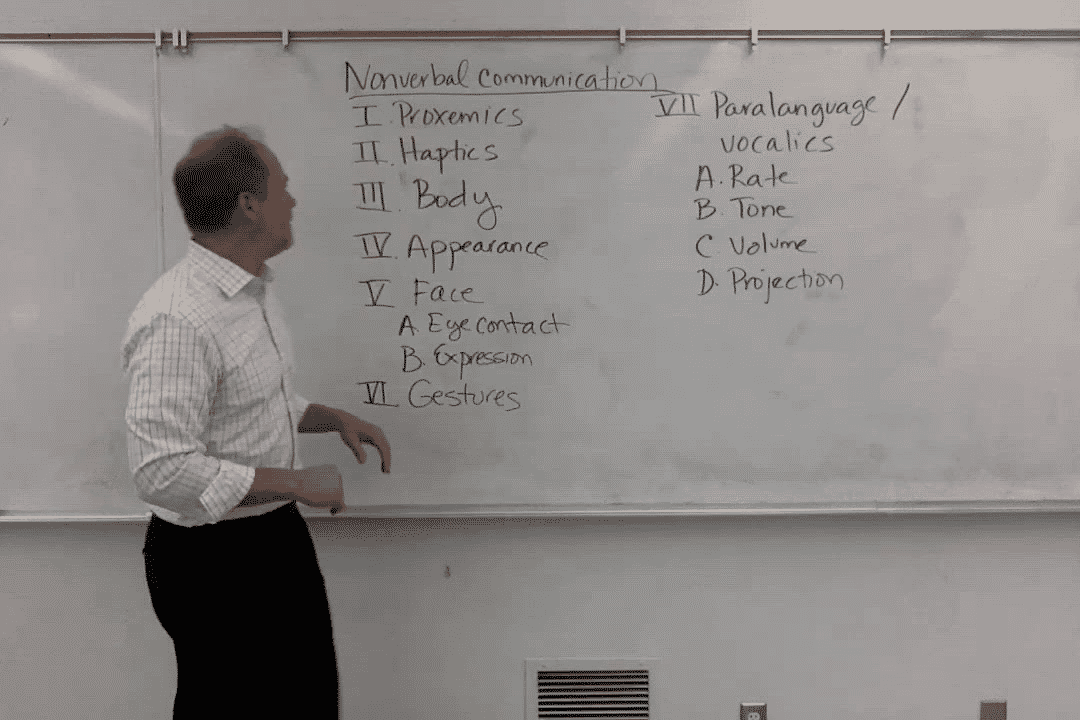 Nonverbal Communication
I. Proxemics
II. Haptics
III. Body
IV. Appearance
V Face
A. Eye contact
B. Expression
VI Gestures
VII Paralanguage /
vocalics
A. Rate
B. Tone
C. Volume
D. Projection